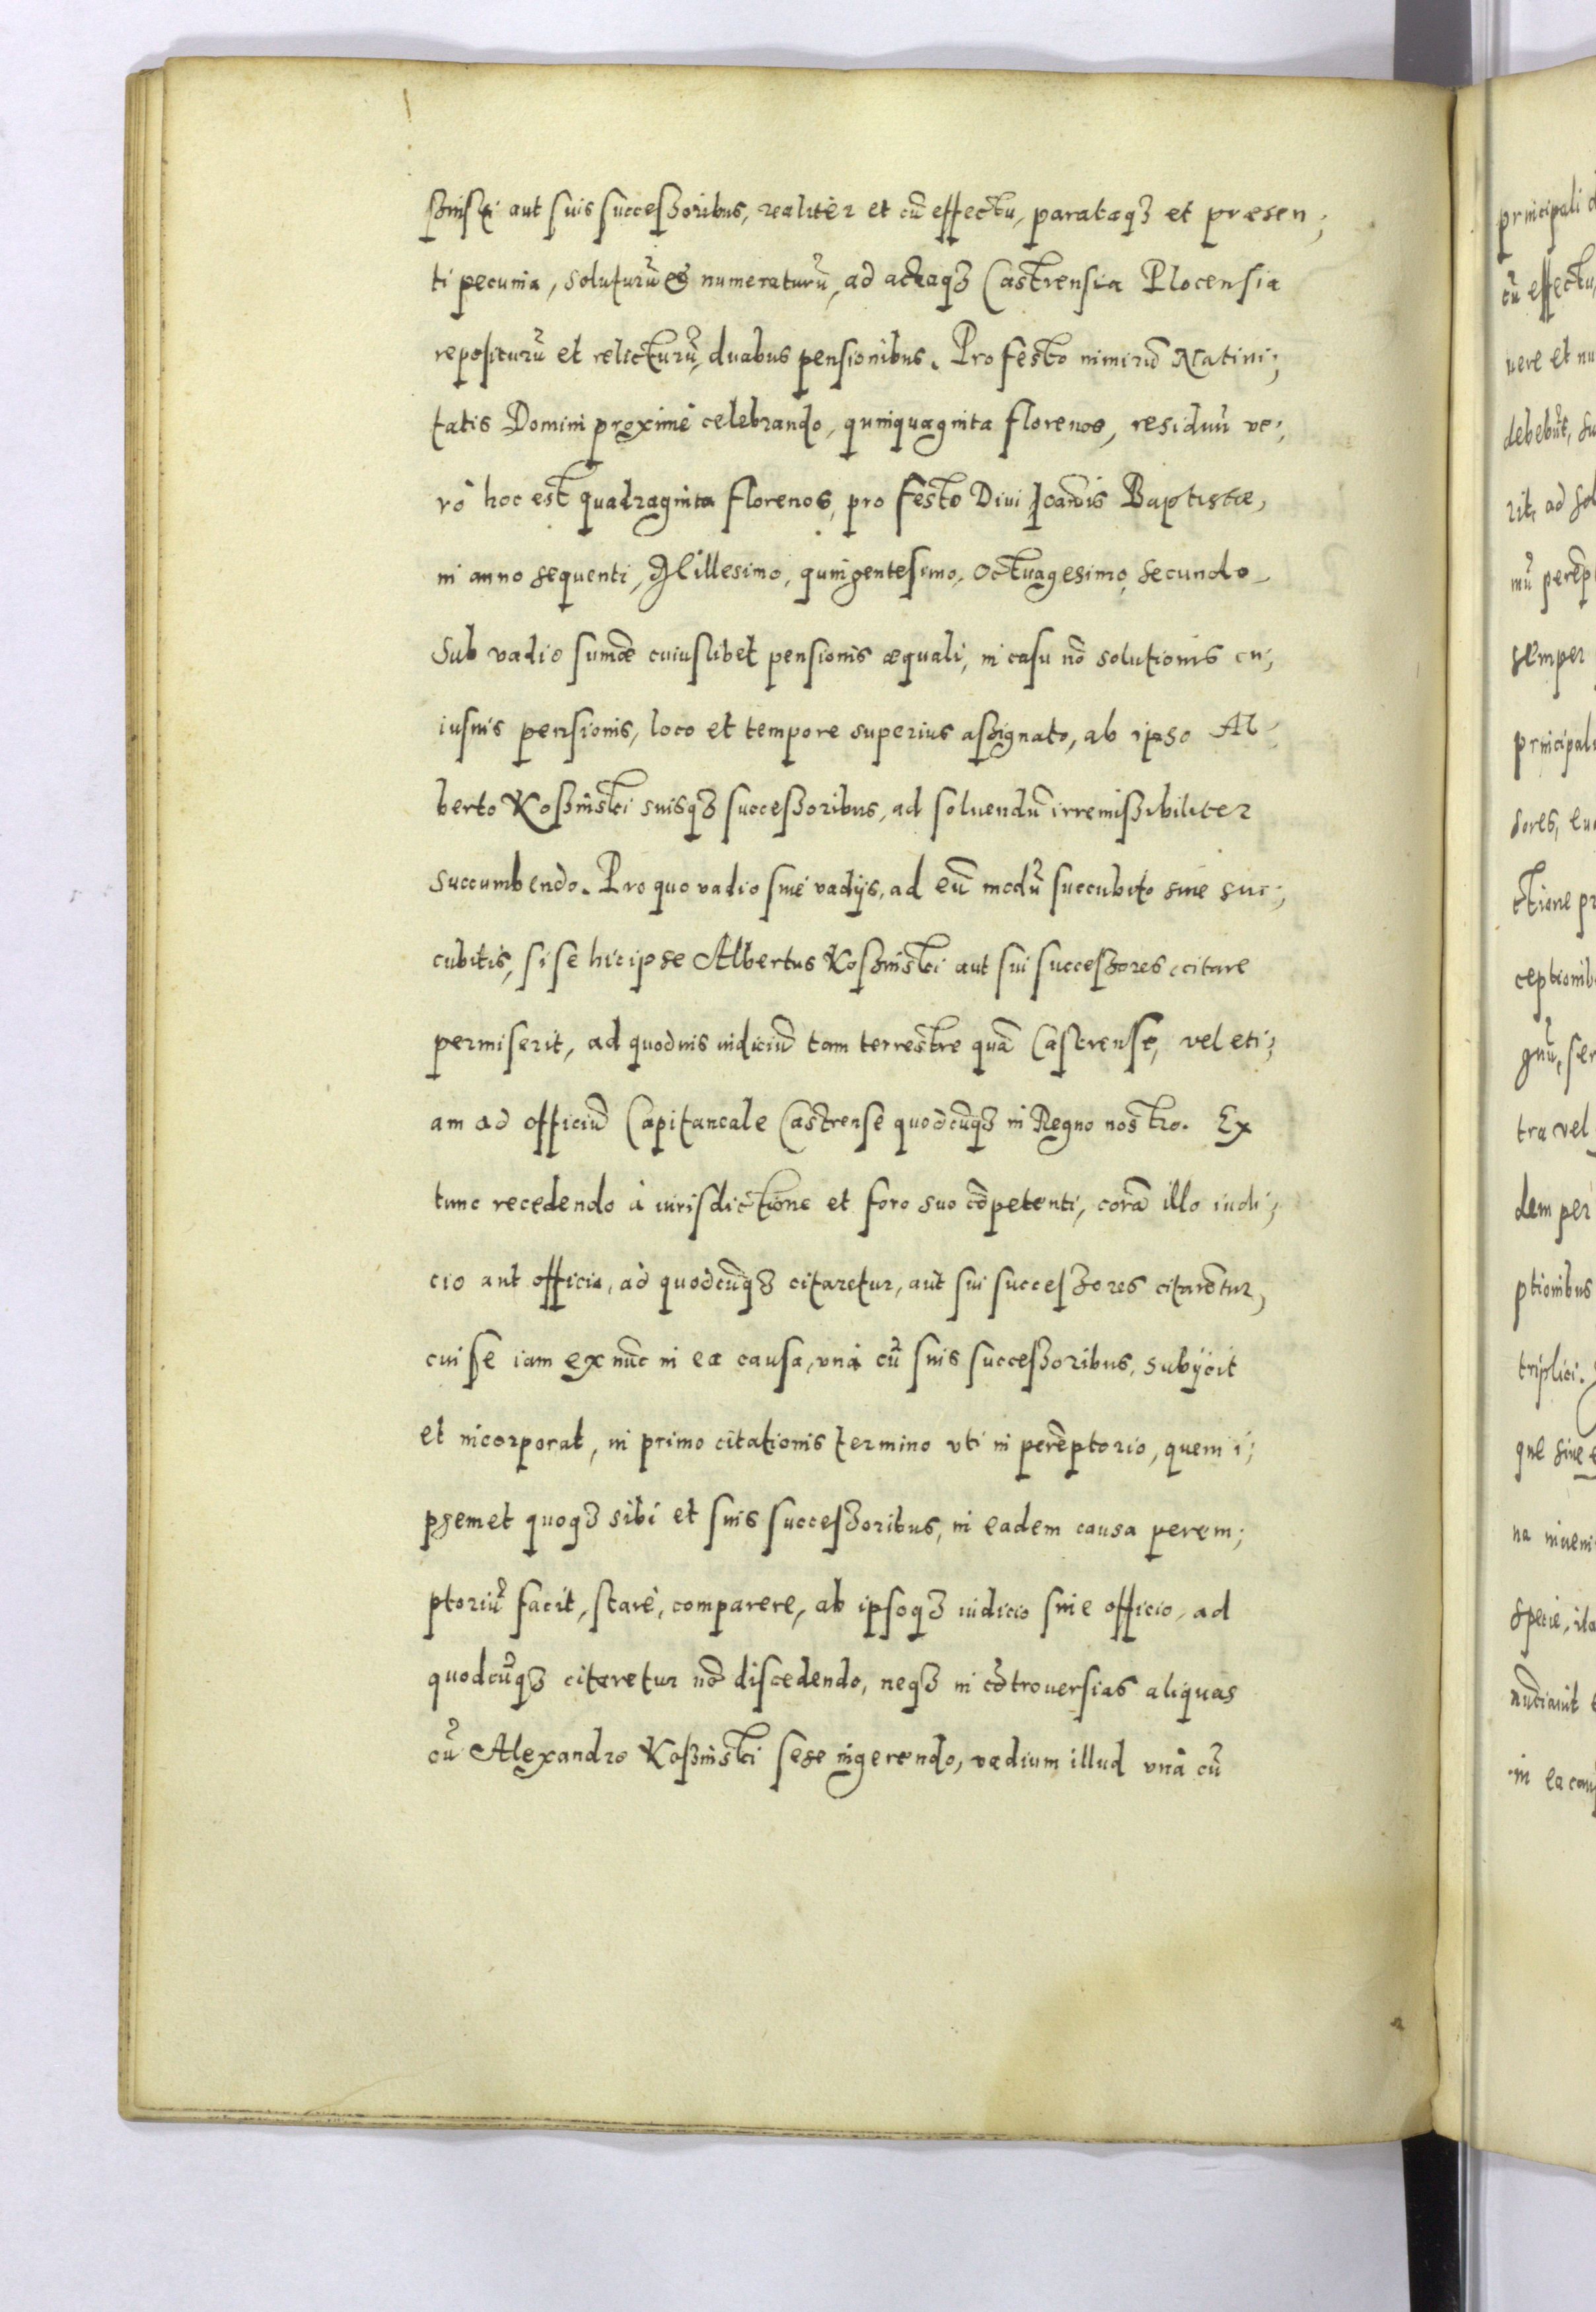 ßinski aut suis successoribus, realiter et cū effectu, parataqꝫ et præsen;
ti pecunia, soluturū et numeraturū, ad actaqꝫ Castrensia Plocensia
repositurū et relicturū, duabus pensionibus. Pro festo nimirū Natiui;
tatis Domini proximè celebrando, quinquaginta florenos, residuū ve;
rò hoc est quadraginta florenos, pro festo Diui Ioānis Baptistæ,
in anno sequenti, Millesimo, quingentesimo, Octuagesimo, Secundo.
Sub vadio sumæ cuiuslibet pensionis æquali, in casu nō solutionis cu;
iusuis pensionis, loco et tempore superius assignato, ab ipso Al;
berto Koßinski suisqꝫ successoribus, ad soluendū irremissibiliter
succumbendo. Pro quo vadio siue vadijs, ad eū modū succubito siue suc;
cubitis, si se hic ipse Albertus Koßinski aut sui successores citare
permiserit, ad quoduis iudiciū tam terrestre quā Castrense, vel eti;
am ad officiū Capitaneale Castrense quodcūqꝫ in Regno nostro. Ex
tunc recedendo à iurisdictione et foro suo cōpetenti, corā illo iudi;
cio aut officio, ad quodcūqꝫ citaretur, aut sui successores citarētur,
cui se iam ex nūc in ea causa, vnà cū suis successoribus, subijcit
et incorporat, in primo citationis termino vti in perēptorio, quem i;
psemet quoqꝫ sibi et suis successoribus, in eadem causa perem;
ptoriū facit, stare, comparere, ab ipsoqꝫ iudicio siue officio, ad
quodcūqꝫ citaretur nō discedendo, neqꝫ in cōtrouersias aliquas
cū Alexandro Koßinski sese ingerendo, vadium illud vnà cū
principali
cū effectu,
uere et nu
debebūt, su
rit, ad sol
mū perēp
semper
principal
sores, eu
ctione pr
ceptionib
gnū, ser
tra vel
dem per
ptionibus
triplici.
que siue e
na inueni
specie, ita
nūciauit
in ea cau